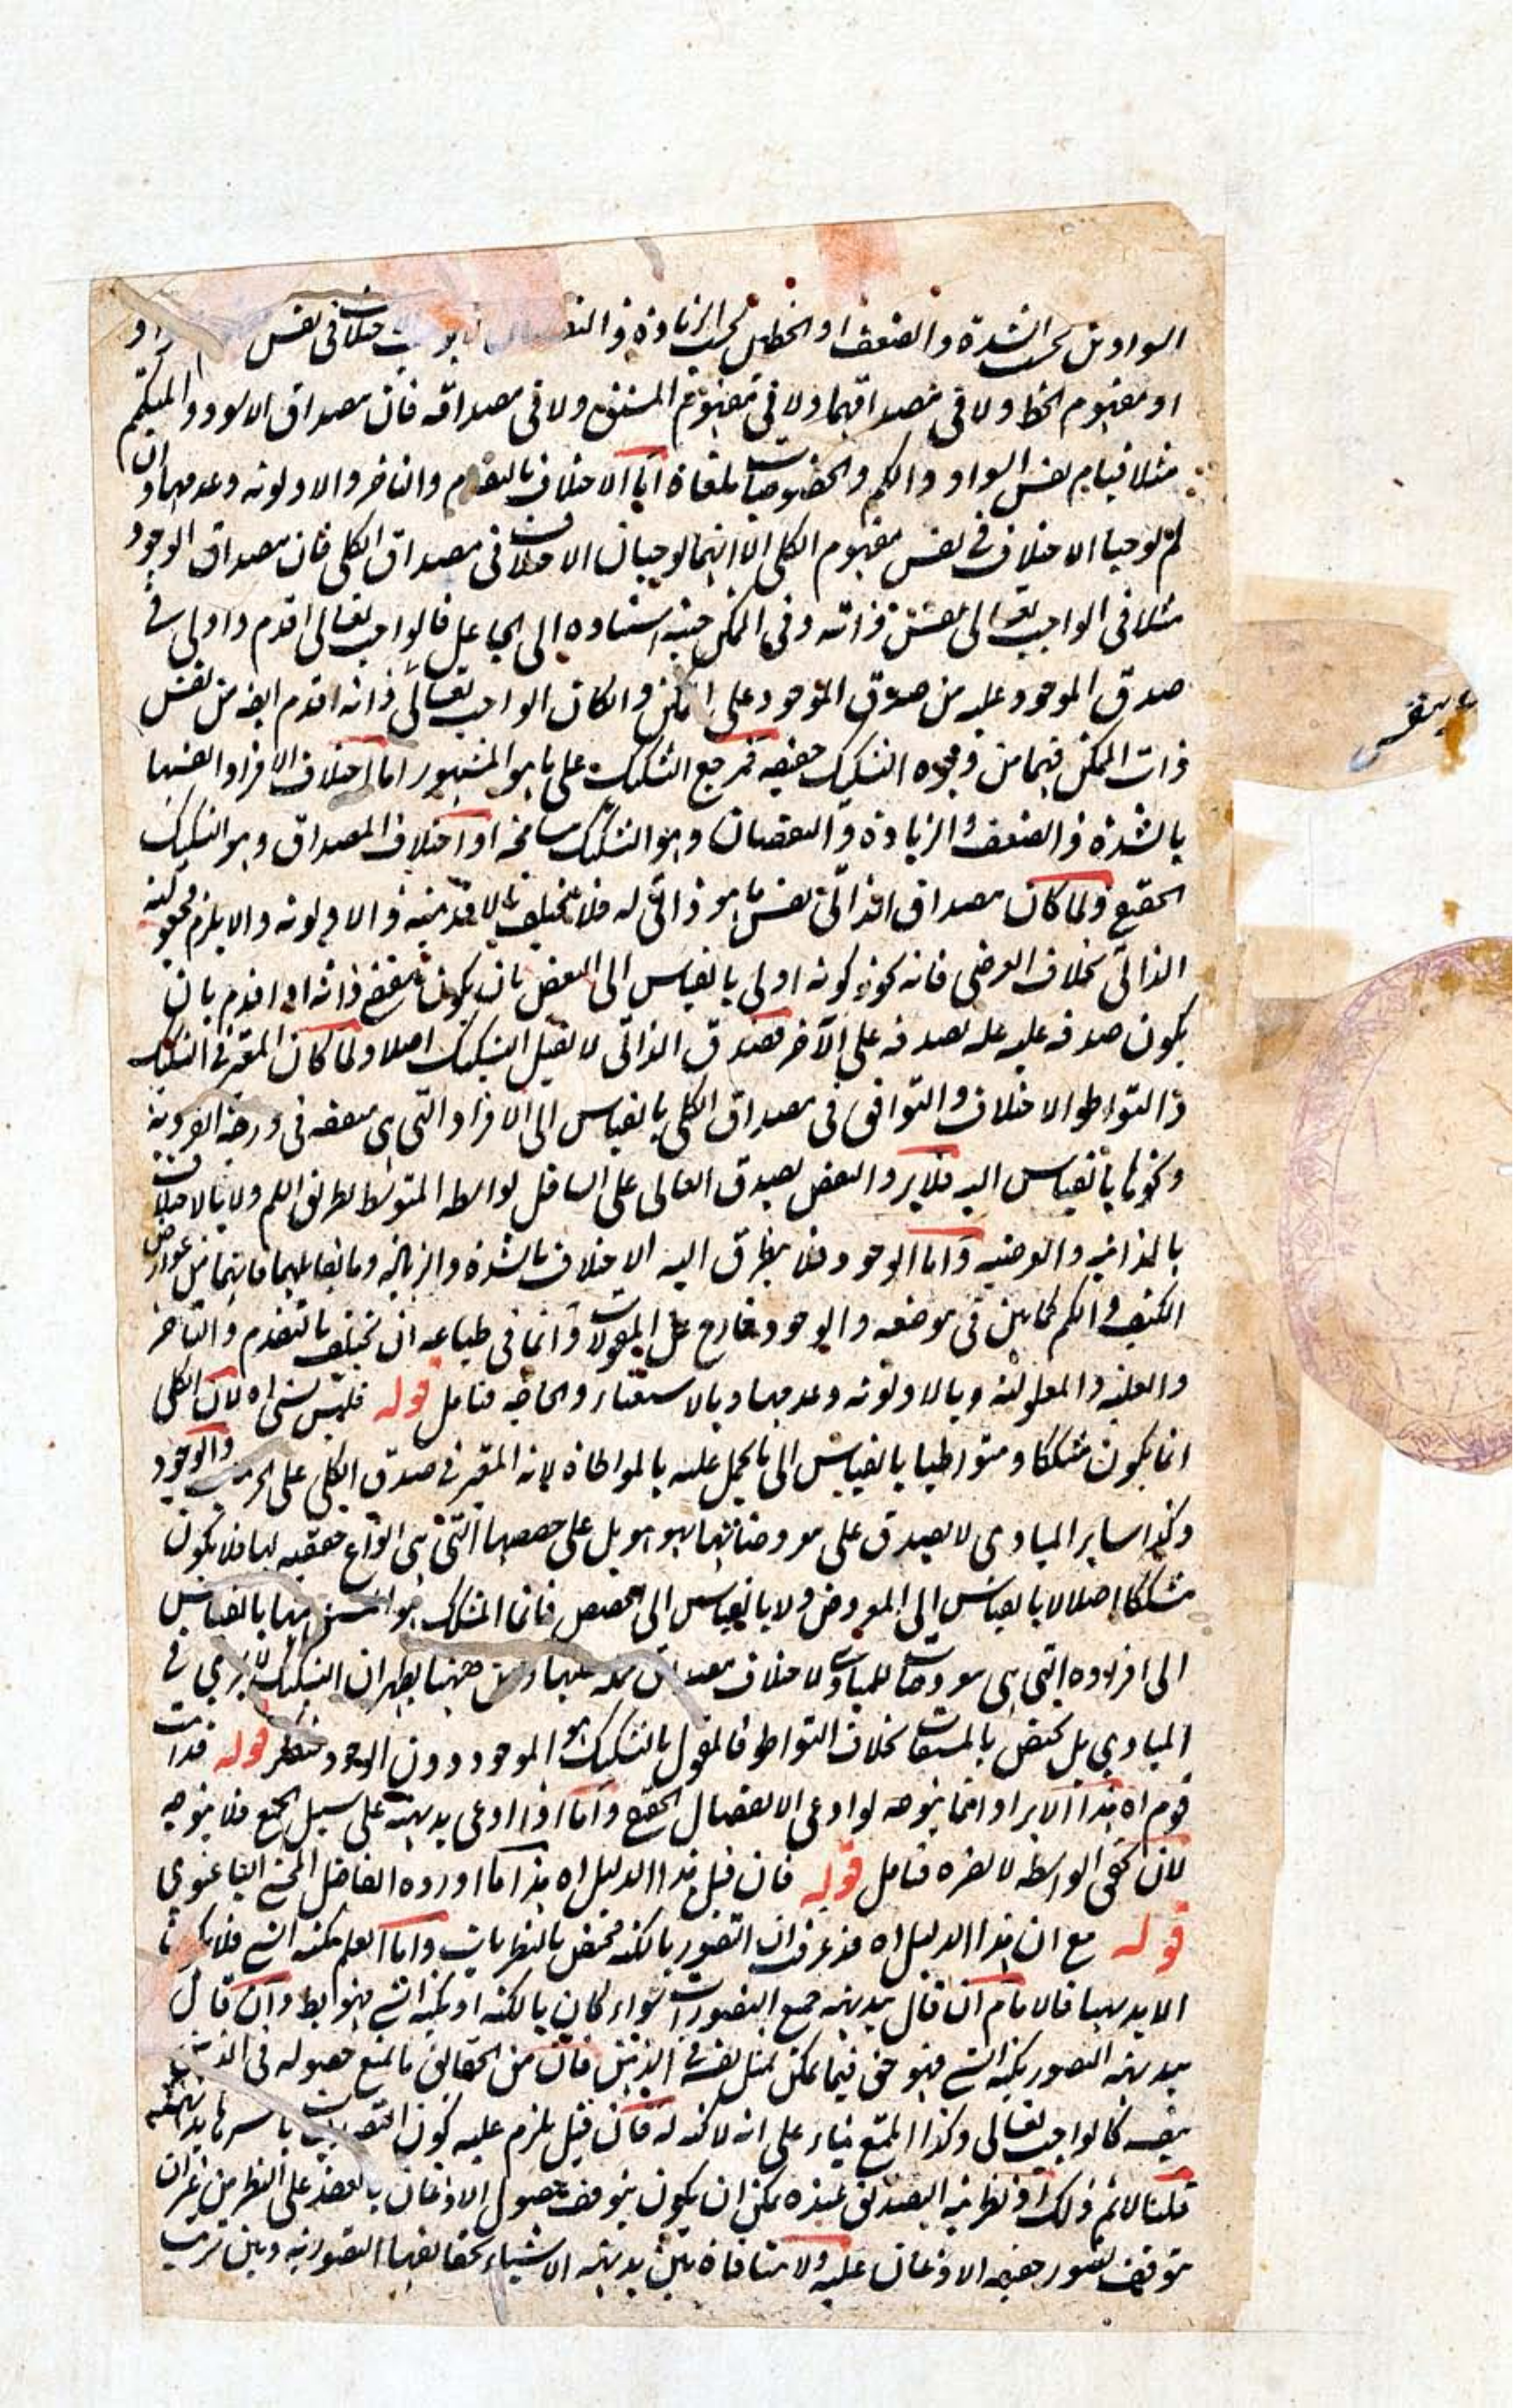 السوادين بحسب الشدة والضعف او الخطين بحسب الزيادة والنقصان لا يوجب اختلافا في نفس
او مفهوم الخط ولا في مصداقهما ولا في مفهوم المشتق ولا في مصداقه فان مصداق الاسود والمتكمم
مثلا قيام نفس السواد والكم والخصوصيات ملغاة اما الاختلاف بالتقدم والتاخر والاولوية وعدمها وان
لم يوجبا الاختلاف في نفس مفهوم الكلي الا انهما يوجبان الاختلاف في مصداق الكلي فان مصداق الوجود
مثلا في الواجب تعالى نفس ذاته وفي الممكن حيثية استناده الى الجاعل فالواجب تعالى اقدم واولى في
صدق الموجود عليه من صدق الموجود على الممكن وان كان الواجب تعالى ذاته اقدم ايضا من نفس
ذات الممكن فيهما من وجوه التشكيك حقيقة فمرجع التشكيك على ما هو المشهور اما اختلاف الافراد انفسها
بالشدة والضعف والزيادة والنقصان وهو التشكيك مسامحة او اختلاف المصداق وهو التشكيك
الحقيقي ولما كان مصداق الذاتي نفس ما هو ذاتي له فلا يختلف بالاقدمية والاولوية والا يلزم مجعولية
الذاتي بخلاف العرضي فانه يجوز كونه اولى بالقياس الى البعض بان يكون مقتضى ذاته او اقدم بان
يكون صدقه عليه علة لصدقه على الآخر فصدق الذاتي لا يقبل التشكيك اصلا ولما كان المعتبر في التشكيك
والتواطو الاختلاف والتوافق في مصداق الكلي بالقياس الى الافراد التي هي متفقة في درجة الفردية
ونحوها بالقياس اليه فلا يرد النقض بصدق العالي على السافل بواسطة المتوسط بطريق اللم ولا بالاختلاف
بالذاتية والعرضية واما الوجود فلا يتطرق اليه الاختلاف بالشدة والزيادة وما يقابلهما فانهما من عوارض
الكيف والكم كما بين في موضعه والوجود خارج عن المقولات وانما في طباعه ان يختلف بالتقدم والتاخر
والعلية والمعلولية وبالاولوية وعدمها وبالاستغناء والحاجة فتامل قوله فليس بشئ اه لان الكلي
انما يكون مشككا ومتواطيا بالقياس الى ما يحمل عليه بالمواطاة لانه المعتبر في صدق الكلي على الجزئي والوجود
وكذا ساير المبادي لا يصدق على معروضاتها بهو هو بل على حصصها التي هي انواع حقيقية لها فلا يكون
مشككا اصلا لا بالقياس الى المعروض ولا بالقياس الى الحصص فانما المشكك هو المشتق منها بالقياس
الى افراده التي هي معروضات للمبادي لاختلاف مصداق حمله عليها ومن ههنا يظهر ان التشكيك لا يجري في
المبادي بل يختص بالمشتقات بخلاف التواطو فالمقول بالتشكيك هو الموجود دون الوجود فتفكر قوله فذات
قوم اه هذا الايراد انما يتوجه لو ادعى الانفصال الحقيقي واما اذا ادعى بديهة على سبيل الجمع فلا يتوجه
لان تحقق الواسطة لا يضره فتامل قوله فان قيل هذا الدليل اه هذا ما اورده الفاضل المحشي الباغنوي
قوله مع ان هذا الدليل اه قد عرفت ان التصور بالكنه مختص بالنظريات واما العلم بكنه الشئ فلا يكون
الا بديهيا فالامام ان قال ببديهة جميع التصورات سواء كان بالكنه او بكنه الشئ فهو باطل وان قال
ببديهة التصور بكنه الشئ فهو حق فيما يمكن تمثل نفسه في الذهن فان من الحقائق ما يمتنع حصوله في الذهن
بنفسه كالواجب تعالى وكذا الممتنع بناء على انه لا كنه له فان قيل يلزم عليه كون التصديقات باسرها بديهية
قلنا لا نم ذلك اذ نظرية التصديق عنده يمكن ان يكون بتوقف حصول الاذعان بالقصد على النظر من غير ان
يتوقف تصور حقيقة الاذعان عليه ولا منافاة بين بديهية الاشياء بحقائقها التصورية وبين ترتيب